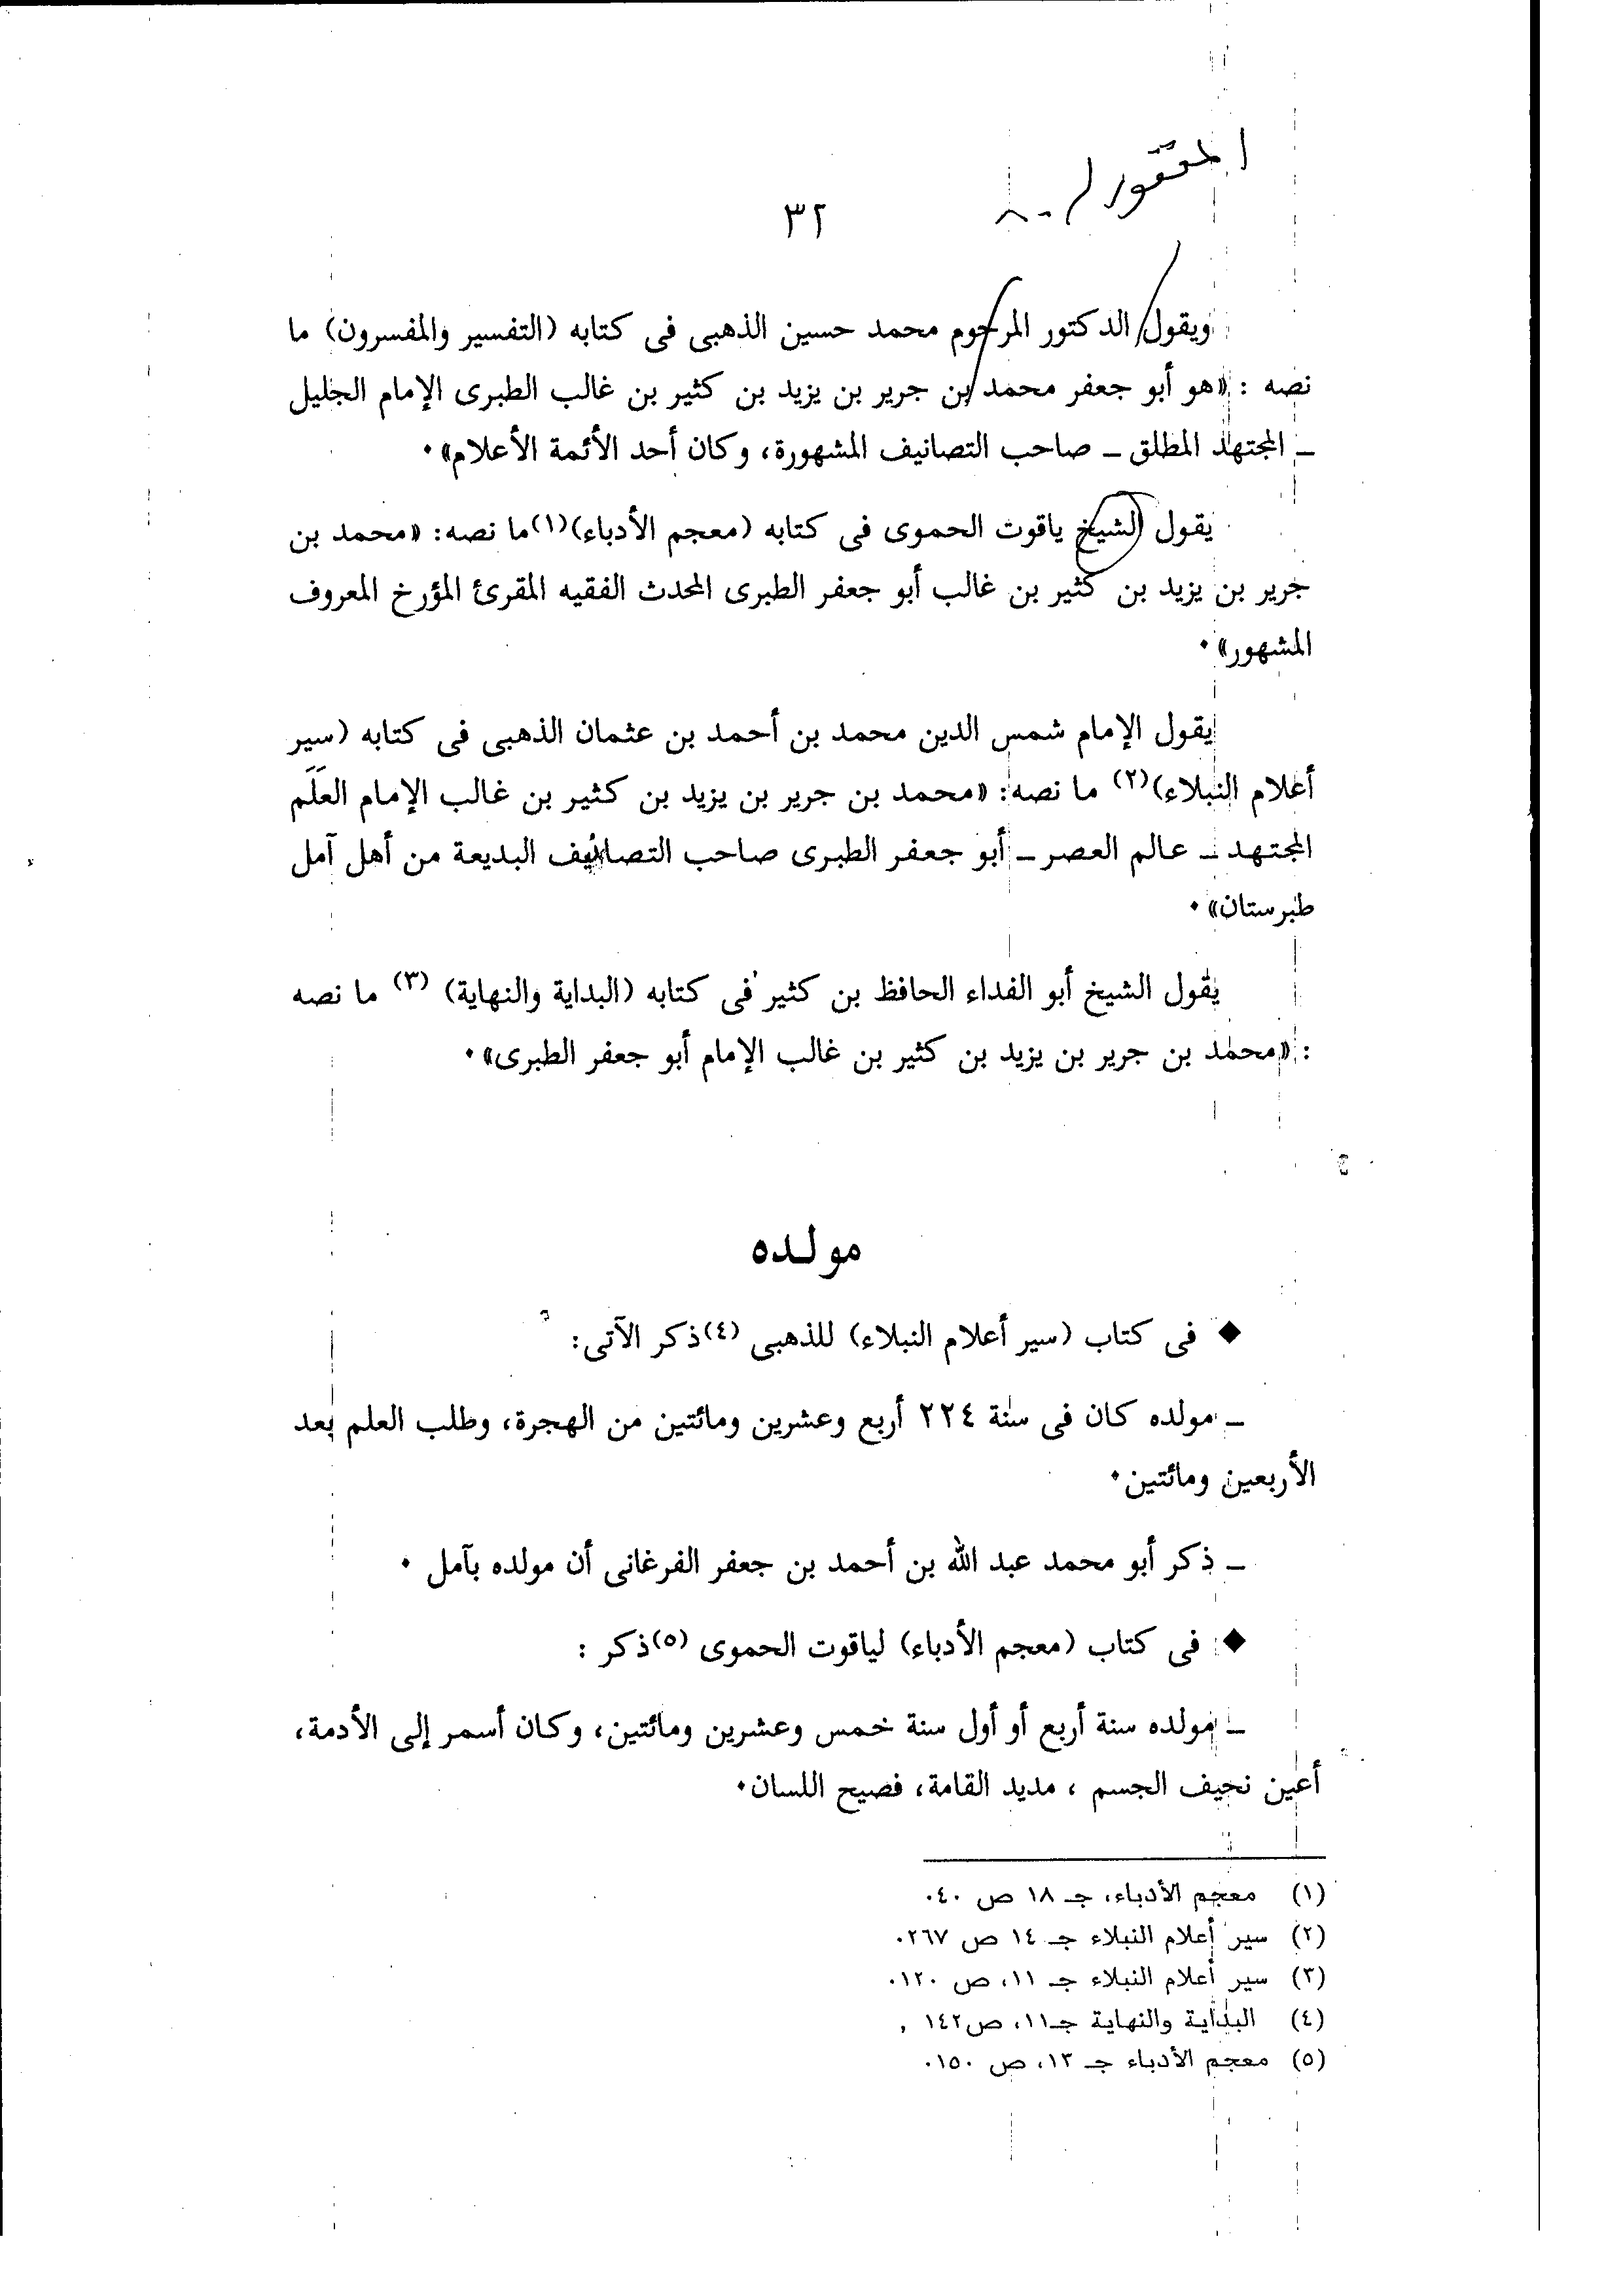 ٣٢
ويقول الدكتور المرحوم محمد حسين الذهبى فى كتابه (التفسير والمفسرون) ما
نصه : «هو أبو جعفر محمد بن جرير بن يزيد بن كثير بن غالب الطبرى الإمام الجليل
ـ المجتهد المطلق ـ صاحب التصانيف المشهورة، وكان أحد الأئمة الأعلام».
يقول الشيخ ياقوت الحموى فى كتابه (معجم الأدباء)(١) ما نصه: «محمد بن
جرير بن يزيد بن كثير بن غالب أبو جعفر الطبرى المحدث الفقيه المقرئ المؤرخ المعروف
المشهور».
يقول الإمام شمس الدين محمد بن أحمد بن عثمان الذهبى فى كتابه (سير
أعلام النبلاء)(٢) ما نصه: «محمد بن جرير بن يزيد بن كثير بن غالب الإمام العَلَم
المجتهد ـ عالم العصر ـ أبو جعفر الطبرى صاحب التصانيف البديعة من أهل آمل
طبرستان».
يقول الشيخ أبو الفداء الحافظ بن كثير فى كتابه (البداية والنهاية) (٣) ما نصه
: «محمد بن جرير بن يزيد بن كثير بن غالب الإمام أبو جعفر الطبرى».
مولده
◆ فى كتاب (سير أعلام النبلاء) للذهبى (٤) ذكر الآتى:
ـ مولده كان فى سنة ٢٢٤ أربع وعشرين ومائتين من الهجرة، وطلب العلم بعد
الأربعين ومائتين.
ـ ذكر أبو محمد عبد الله بن أحمد بن جعفر الفرغانى أن مولده بآمل .
◆ فى كتاب (معجم الأدباء) لياقوت الحموى (٥) ذكر :
ـ مولده سنة أربع أو أول سنة خمس وعشرين ومائتين، وكان أسمر إلى الأدمة،
أعين نحيف الجسم ، مديد القامة، فصيح اللسان.
(١) معجم الأدباء، جـ ١٨ ص ٤٠.
(٢) سير أعلام النبلاء جـ ١٤ ص ٢٦٧.
(٣) سير أعلام النبلاء جـ ١١، ص ١٢٠.
(٤) البداية والنهاية جـ١١، ص١٤٢ ,
(٥) معجم الأدباء جـ ١٣، ص ١٥٠.